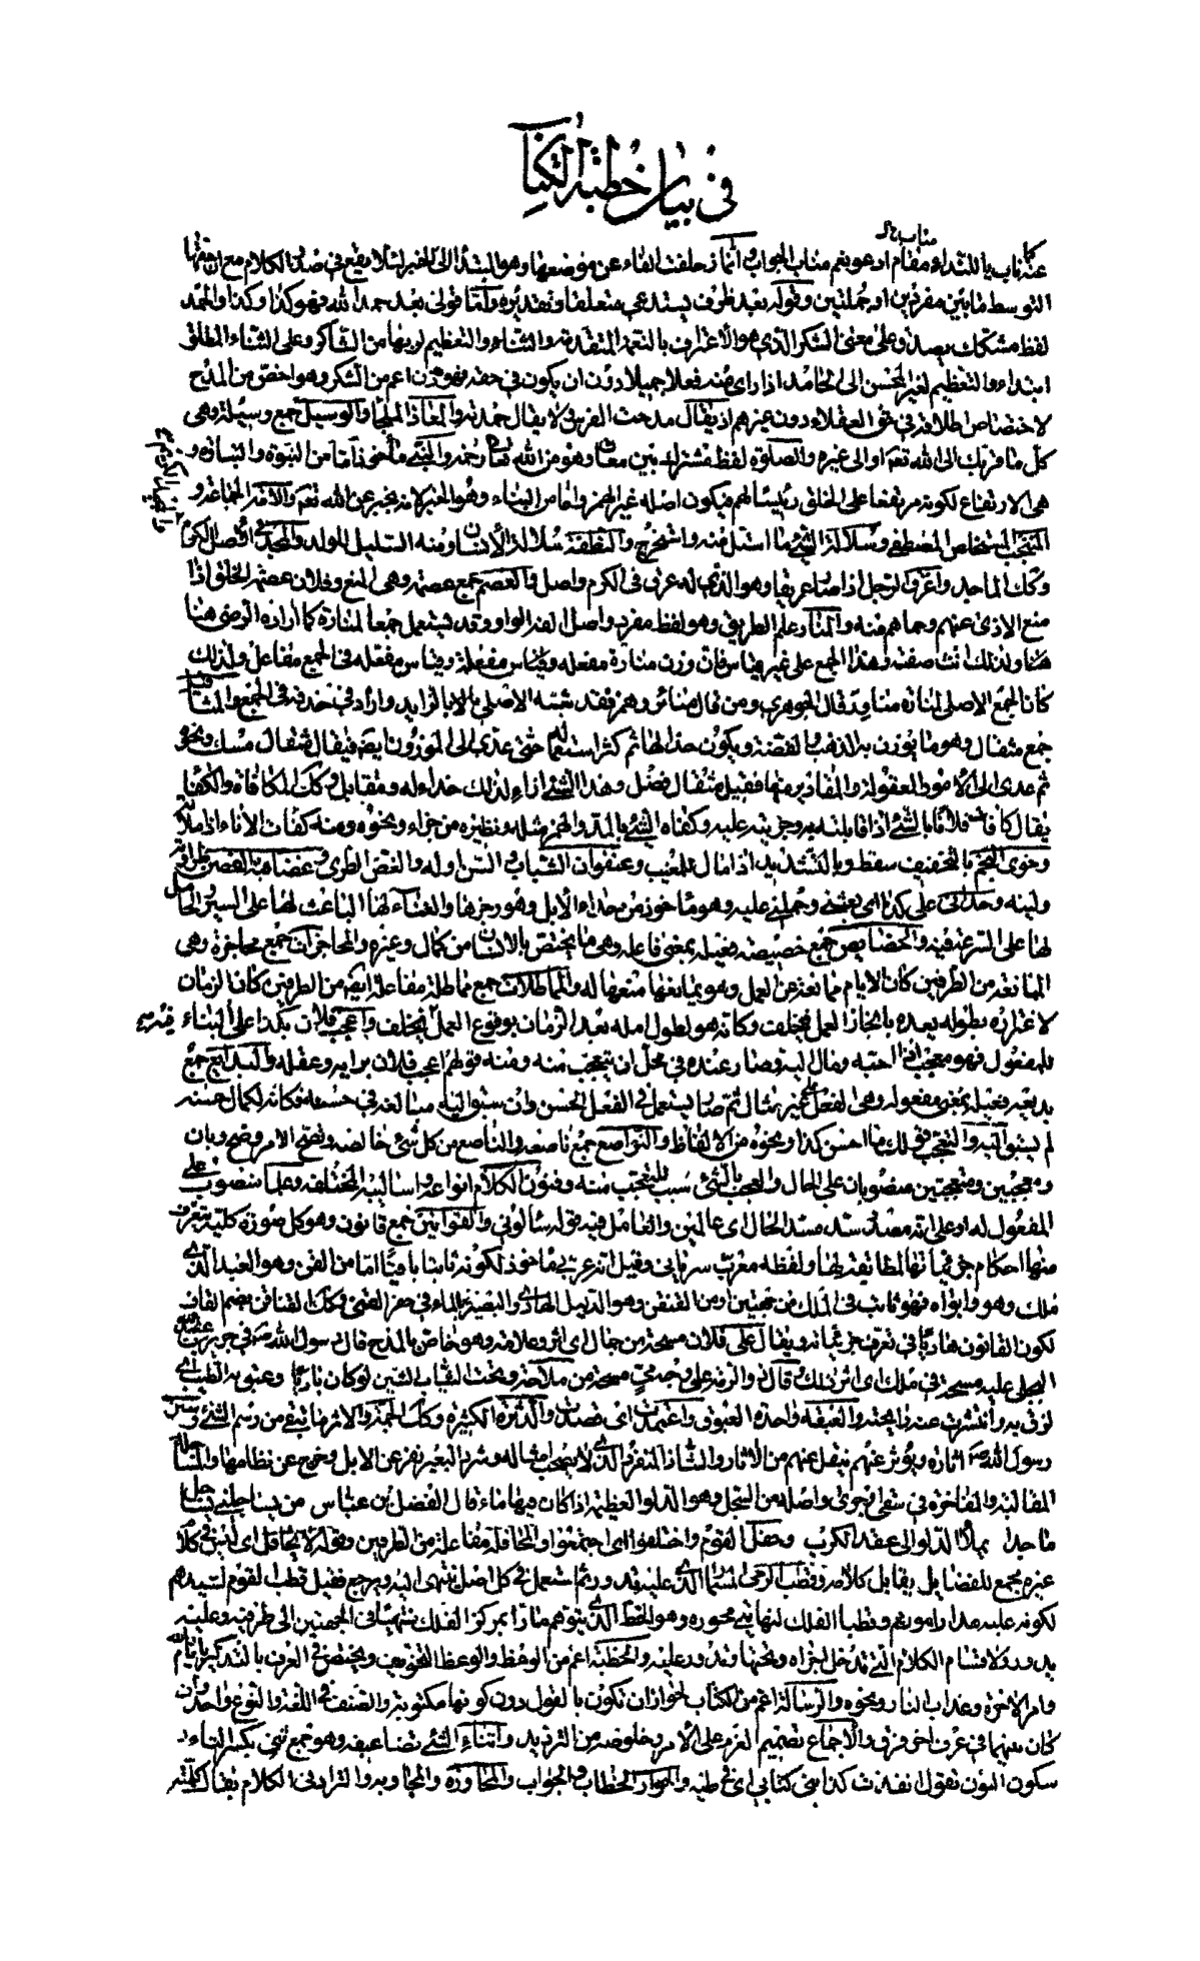 في بيان خطبة الكتاب
مناب
عنه كما ناب يا للنداء مقام ادعو نعم مناب الجواب وانما زحلفت الفاء عن موضعها وهو المبتدأ الى الخبر لئلا يقع في صدر الكلام مع ان حقها
التوسط ما بين مفردين او جملتين وقوله بعد ظرف يستدعي متعلقا وتقديره واما قولي بعد حمد الله فهو كذا وكذا والحمد
لفظ مشكك يصدق على معنى الشكر الذي هو الاعتراف بالنعمة المتقدمة والثناء والتعظيم لربها من الشاكر وعلى الثناء المطلق
ابتداء والتعظيم لغير المحسن الى الحامد اذا راى منه فعلا جميلا دون ان يكون في حقه فهو اذن اعم من الشكر وهو اخص من المدح
لاختصاص اطلاقه في حق العقلاء دون غيرهم اذ يقال مدحت الفرس ولا يقال حمدته والمعاذ الملجأ والوسيل جمع وسيلة وهي
كل ما قربك الى الله تعالى او الى غيره والصلوة لفظ مشترك بين معان وهو من الله تعالى رحمة والنبي مأخوذ اما من النبوة والنباوة و
هي الارتفاع لكونه مرتفعا على الخلق رئيسا لهم فيكون اصله غير الهمز واما من النباء وهو الخبر لانه يخبر عن الله تعه والامة الجماعة و
المنتجب المستخلص المصطفى وسلالة الشيء ما استل منه واستخرج والنطفة سلالة الانسان ومنه السليل للولد والمجد في الاصل الكرم
وكك الماجد واعرق الرجل اذا صار عريقا وهو الذي له عرق في الكرم واصل والعصم جمع عصمة وهي المنع وفلان عصمة الخلق اذا
منع الاذى عنهم وحماهم منه والمنار علم الطريق وهو لفظ مفرد واصل الفه الواو وقد يستعمل جمعا لمنارة كما اراده الرضي هنا
هنا ولذلك انث صفته وهذا الجمع على غير قياس فان وزن منارة مفعلة وقياس مفعلة في الجمع مفاعل ولذلك
كان الجمع الاصلي لمنارة مناور قال الجوهري ومن قال منائر وهمز فقد شبه الاصلي بالزايد والمثاقيل
جمع مثقال وهو ما يوزن به الذهب والفضة ويكون حذاء لها ثم كثر استعماله حتى عدى الى الموزون ايضا فيقال مثقال مسك ونحوه
ثم عدى الى الامور المعقولة والمقادير منها فقيل مثقال فضل وهذا الشيء ازاء لذلك حذاء له ومقابل وكك المكافاة والكفاء
يقال كافات فلانا بالشيء اذا قابلته به وجزيته عليه وكفاء الشيء بالمد والهمز مثله ونظيره من جزاء ونحوه ومنه كفات الاناء اذا
وخوى النجم بالتخفيف سقط وبالتشديد اذا مال للمغيب وعنفوان الشباب والسن اوله والغض الطري وغضاضة الغصن
ولينه وحداني على كذا اي بعثني وحملني عليه وهو ماخوذ من حداء الابل وهو زجرها والغناء لها الباعث لها على السير والحامل
لها على السرعة فيه والخصايص جمع خصيصة فعيلة بمعنى فاعله وهي ما يختص بالانسان من كمال وغيره والمحاجزات جمع محاجزة وهي
الممانعة من الطرفين كان الايام مما نعته عن العمل وهو يمانعها منعها له والمماطلات جمع مماطلة مفاعلة ايضا من الطرفين كان الزمان
لاغتراره بطوله يعده بانجاز العمل فيخلف وكانه هو لطول امله بعد الزمان بوقوع العمل فيخلف واعجب فلان بكذا على البناء
للمفعول فهو معجب اذا احبه ومال اليه وصار عنده في محل ان يتعجب منه ومنه قولهم اعجب فلان برايه وعقله والبدايع جمع
بديعة فعيلة بمعنى مفعولة وهي الفعل على غير مثال ثم صار يستعمل في الفعل الحسن وان سبق اليه مبالغة في حسنه فكانه لكمال حسنه
لم يسبق اليه والتعجب قولك ما احسن كذا ونحوه من الالفاظ والنواصع جمع ناصعة والناصع من كل شيء خالصه ونصع الامر وضح وبان
ومعجبين ومتعجبين منصوبان على الحال والعجب بالشيء سبب للتعجب منه وفنون الكلام انواعه واساليبه المختلفة وعلما منصوب على
المفعول له او على انه مصدر سد مسد الحال اي عالمين والعامل فيه قوله سالوني والقوانين جمع قانون وهو كل صورة كلية يتعرف
منها احكام جزئياتها المطابقة لها ولفظه معرب سرياني وقيل انه عربي ماخوذ
ملك هو وابواه
لكون القانون هاديا في تعرف جزئياته ويقال على فلان مسحة من جمال اي اثر وعلامة وهو خاص بالمدح قال رسول الله ص في جرير بن عبد الله
البجلي عليه مسحة ملك اي اثر ملك وقال ذو الرمة على وجه مي مسحة من ملاحة وتحت الثياب الشين لو كان باديا وعبق به الطيب اي
لزق به وانتشرت عنده رايحته والعبقة واحدة العبوق واعتمدت اي قصدت والدثرة الكثيرة وكك الجمة والاثر ما بقي من رسم الشيء وسنن
رسول الله ص اثاره ويؤثر عنهم ينقل عنهم من الاثار والشاذ المنفرد الذي لا يصحب امثاله وشرد البعير نفر عن الابل وخرج عن نظامها والمساجلة
المغالبة والمفاخرة في سقي او جرى واصله من السجل وهو الدلو العظيمة اذا كان فيها ماء قال الفضل بن عباس من يساجلني يساجل
ماجدا يملأ الدلو الى عقد الكرب وحفل القوم واحتفلوا اي اجتمعوا والمحافلة مفاعلة من الطرفين وقوله لا يحافل اي ليس في كلام
غيره مجمع للفضايل يقابل كلامه وقطب الرحى المسمار الذي عليه تدور ثم استعمل في كل اصل ينتهى اليه ويرجع فقيل قطب القوم لسيدهم
لكونه عليه مدار امورهم وقطبا الفلك نهايتي محوره وهو الخط الذي يتوهم مارا بمركز الفلك منتهيا في الجهتين الى طرفيه وعليه
يدور ولاقسام الكلام التي تدخل اجزاءه وتحتها وتدور عليه والخطبة اعم من الوعظ والوعظ التخويف ويختص في العرف بالتذكير بايام الله
وامر الاخرة وعذاب النار ونحوه والرسالة اعم من الكتاب لجواز ان تكون بالقول دون كونها مكتوبة والصنف في اللغة والنوع واحد وان
كان بينهما في عرف اخر فرق والاجماع تصميم العزم على الامر وخلوصه من الترديد واثناء الشيء تضاعيفه وهو جمع ثني بكسر الثاء و
سكون النون تقول انفذت كذا ثني كتابي اي في طيه والحوار الخطاب والجواب والمحاورة والمجاوبة والتراد في الكلام يقال كلمته